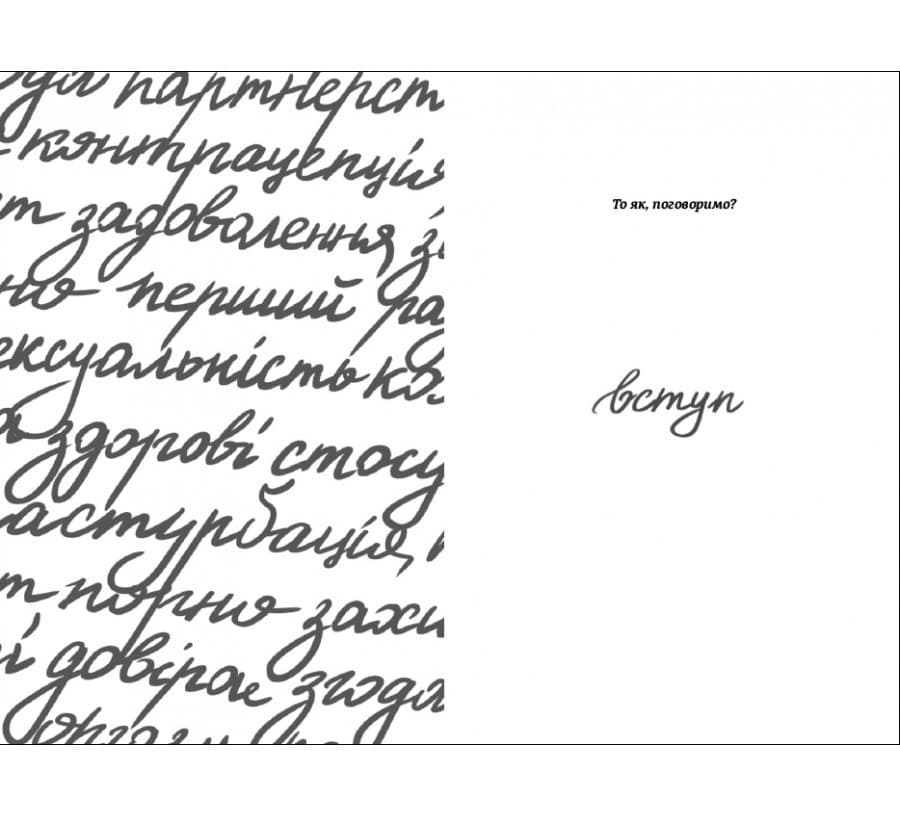 партнерст
контрацепція
задоволення
перший ра
ексуальність
здорові стосу
астурбація,
порно захи
і довіра є згода
То як, поговоримо?
вступ